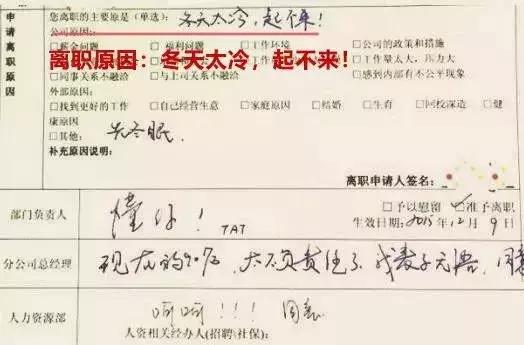 申请离职原因
您离职的主要原是(单选): 冬天太冷，起不来！
公司原因:
□薪金问题 □福利问题 □工作环境 □公司的政策和措施
离职原因：冬天太冷，起不来！
□工作量太大，压力大
□同事关系不融洽 □与上司关系不融洽 □感到内部有不公平现象
外部原因:
□找到更好的工作 □自己经营生意 □家庭原因 □结婚 □生育 □回校深造 □健
康原因
□其他: 先冬眠
补充原因说明:
离职申请人签名:
部门负责人 懂你！ TAT
□予以慰留 □准予离职
生效日期: 2015年12月9日
分公司总经理 现在的90后，太不负责任了，我表示无语，同意
人力资源部 呵呵！！！ 同意
人资相关经办人(招聘\社保):